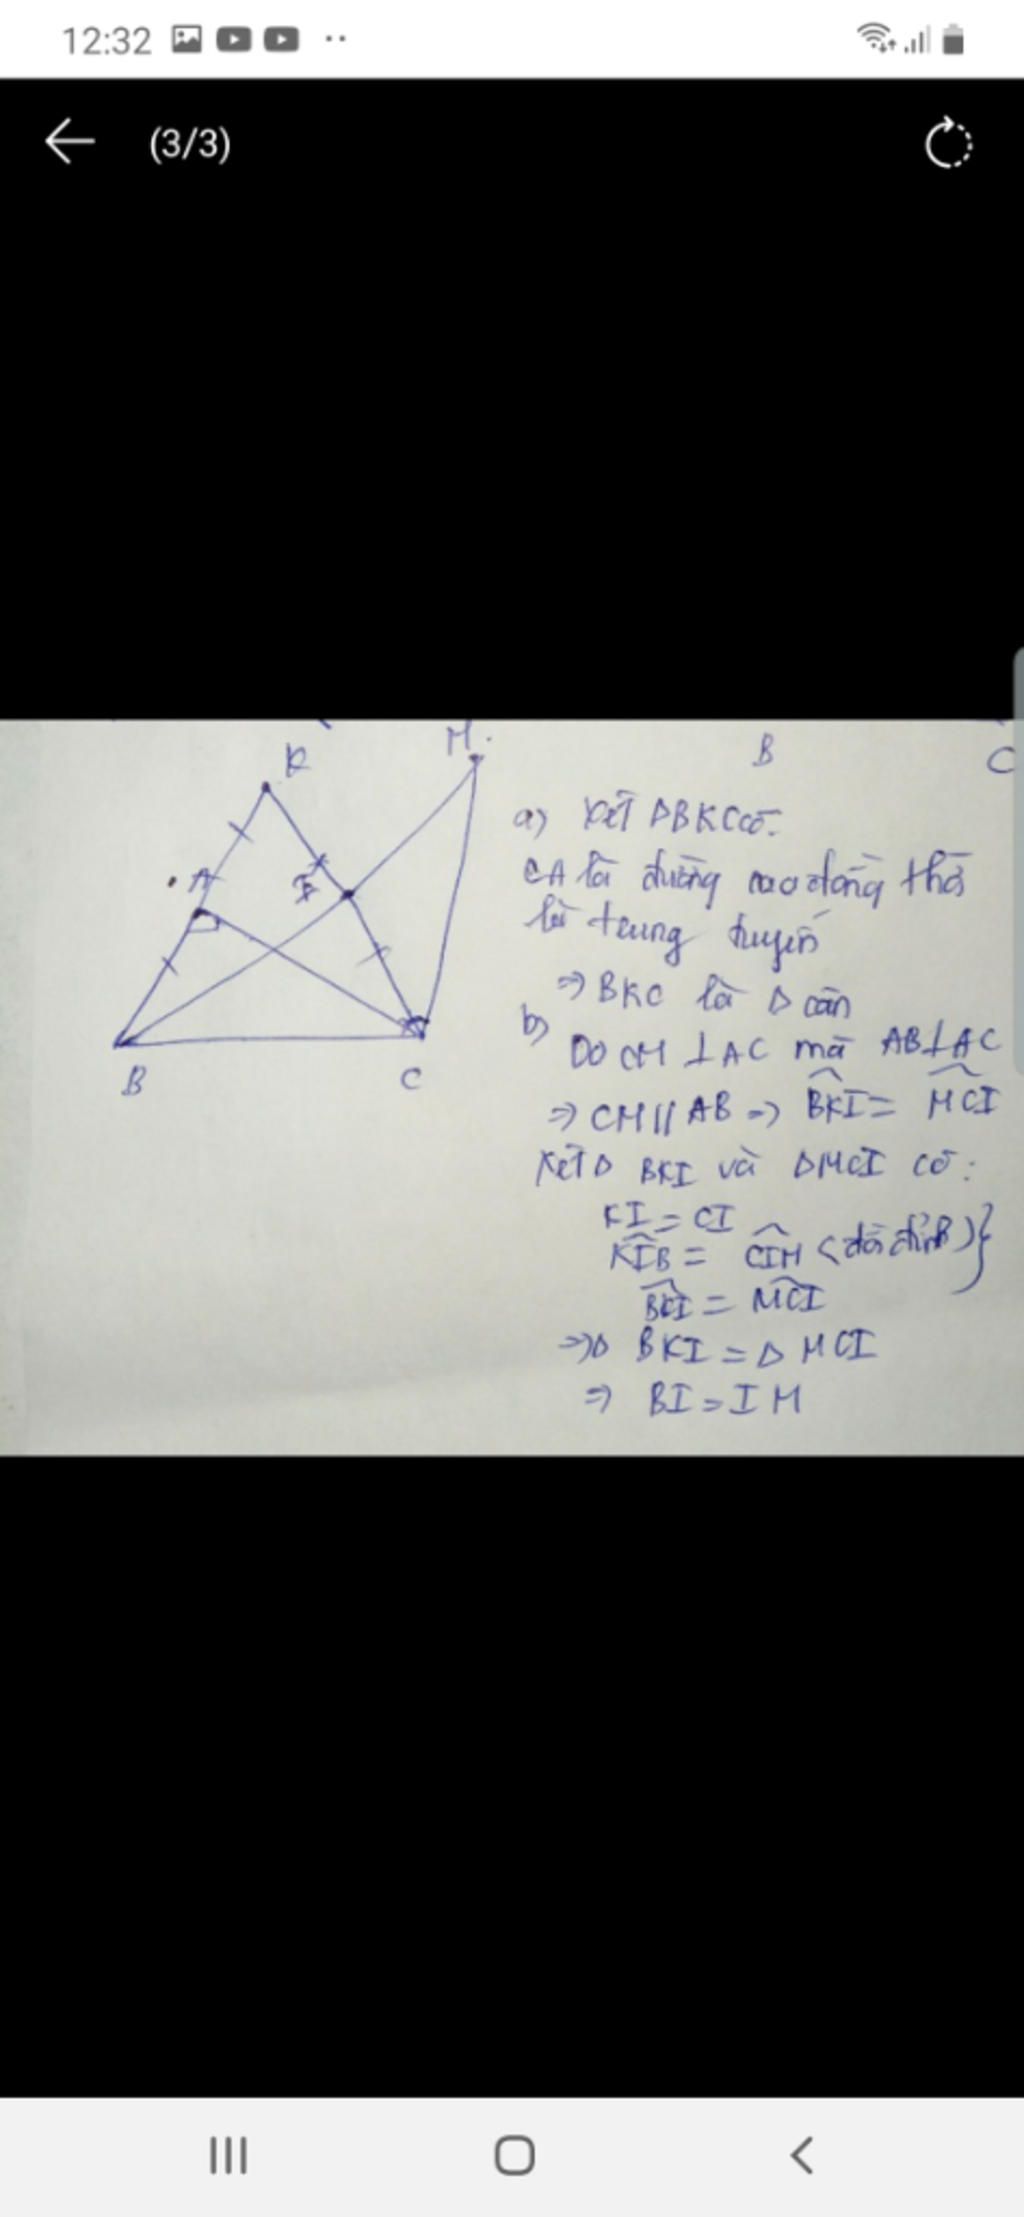 12:32
(3/3)
K
M
B
C
A
I
B
C
a) Xét ΔBKC có:
CA là đường cao đồng thời
là trung tuyến
⇒ BKC là Δ cân
b) Do CM ⊥ AC mà AB ⊥ AC
⇒ CM // AB ⇒ \widehat{BKI} = \widehat{MCI}
Xét Δ BKI và ΔMCI có:
KI = CI
\widehat{KIB} = \widehat{CIM} (đối đỉnh) }
\widehat{BKI} = \widehat{MCI}
⇒ Δ BKI = Δ MCI
⇒ BI = IM